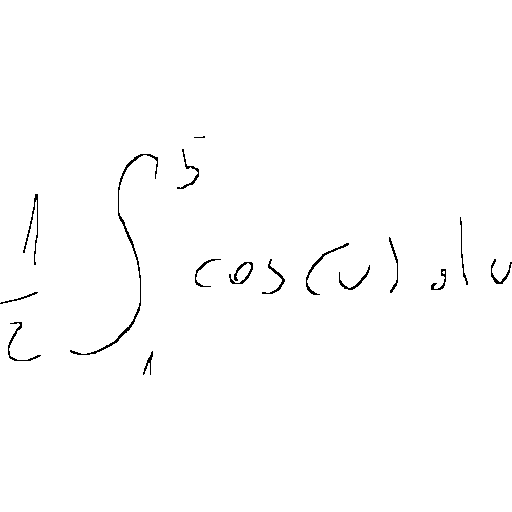 \frac{1}{2} \int_{1}^{5} \cos(u) \, du